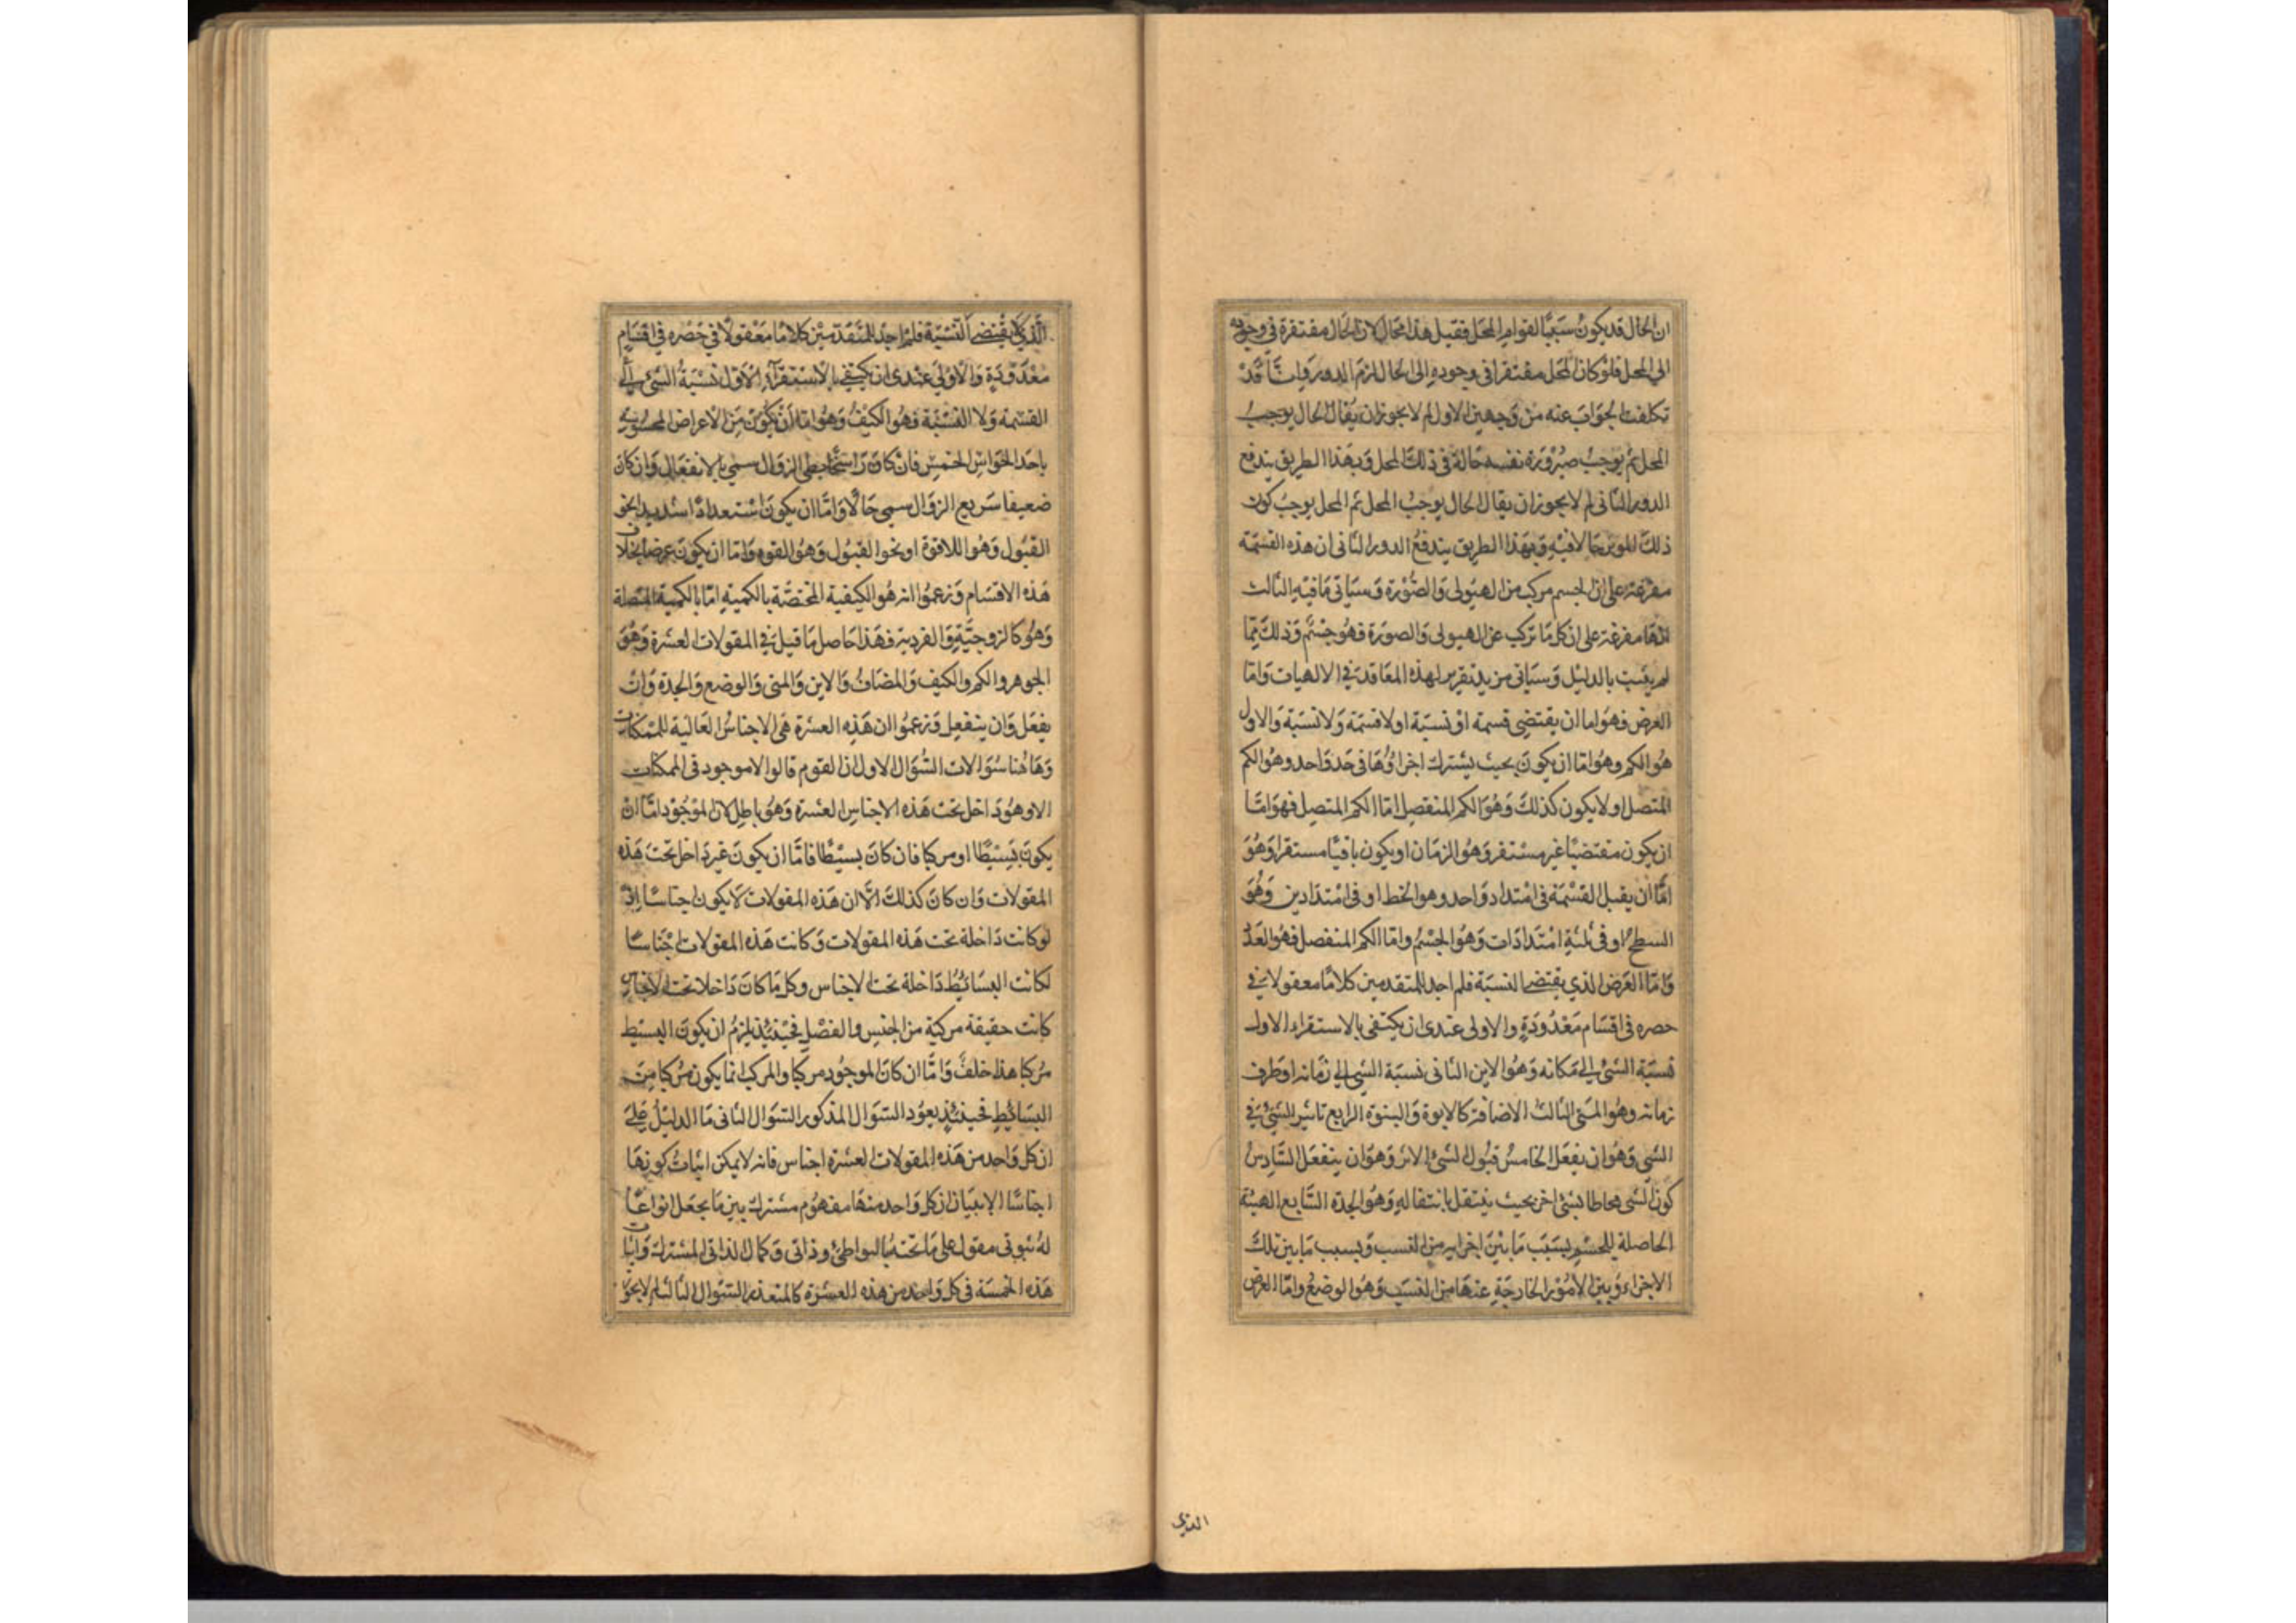 ان الحال قد يكون سببا لقوام المحل فقيل هذا محال لان الحال مفتقرة في وجوده
الي المحل فلو كان المحل مفتقرا في وجوده الى الحال لزم الدور وانا قد
تكلفت الجواب عنه من وجهين الاول لم لا يجوز ان يقال الحال يوجب
المحل ثم يوجب صيرورة نفسه حالة في ذلك المحل وبهذا الطريق يندفع
الدور الثاني لم لا يجوز ان يقال الحال يوجب المحل ثم المحل يوجب كون
ذلك الموثر حالا فيه وبهذا الطريق يندفع الدور الثاني ان هذه القسمة
مفرعة على ان الجسم مركب من الهيولى والصورة وسياتي ما فيه الثالث
انها مفرعة على ان كل ما تركب عن الهيولى والصورة فهو جسم وذلك مما
لم يثبت بالدليل وسياتي مزيد تقرير لهذه المعاقد في الالهيات واما
العرض فهو اما ان يقتضي قسمة او نسبة او لا قسمة ولا نسبة والاول
هو الكم وهو اما ان يكون بحيث يشترك اجزاؤها في حد واحد وهو الكم
المتصل او لا يكون كذلك وهو الكم المنفصل اما الكم المتصل فهو اما
ان يكون منقضيا غير مستقر وهو الزمان او يكون باقيا مستقرا وهو
اما ان يقبل القسمة في امتداد واحد وهو الخط او في امتدادين وهو
السطح او في ثلثة امتدادات وهو الجسم واما الكم المنفصل فهو العدد
واما العرض الذي يقتضي النسبة فلم اجد للمتقدمين كلاما معقولا في
حصره في اقسام معدودة والاولى عندي ان يكتفى بالاستقراء الاول
نسبة الشئ الي مكانه وهو الاين الثاني نسبة الشئ الي زمانه او طرف
زمانه وهو المتى الثالث الاضافة كالابوة والبنوة الرابع تاثير الشئ في
الشئ وهو ان يفعل الخامس قبول الشئ الاثر وهو ان ينفعل السادس
كون الشئ محاطا بشئ اخر بحيث ينتقل بانتقاله وهو الجدة السابع الهيئة
الحاصلة للجسم بسبب ما بين اجزايه من النسب وبسبب ما بين تلك
الاجزاء وبين الامور الخارجة عنها من النسب وهو الوضع واما العرض
الذي
الذي لا يقتضي النسبة فلم اجد للمتقدمين كلاما معقولا في حصره في اقسام
معدودة والاولى عندى ان يكتفي بالاستقرآء الاول نسبة الشئ الي
القسمة ولا النسبة وهو الكيف وهو اما ان يكون من الاعراض المحسوسة
باحد الحواس الخمس فان كان راسخا بطئ الزوال سمي بالانفعال وان كان
ضعيفا سريع الزوال سمي حالا واما ان يكون استعدادا شديدا نحو
القبول وهو اللاقوة او نحو القبول وهو القوه واما ان يكون عرضا بخلاف
هذه الاقسام وزعموا انه هو الكيفية المختصة بالكمية اما بالكمية المتصلة
وهو كالزوجية والفردية فهذا حاصل ما قيل في المقولات العشرة وهو
الجوهر والكم والكيف والمضاف والاين والمتى والوضع والجدة وان
يفعل وان ينفعل وزعموا ان هذه العشرة هي الاجناس العالية للممكنات
وهاهنا سوالات السؤال الاول ان القوم قالوا لا موجود في الممكنات
الا وهو داخل تحت هذه الاجناس العشرة وهو باطل لان الموجود اما ان
يكون بسيطا او مركبا فان كان بسيطا فاما ان يكون غير داخل تحت هذه
المقولات وان كان كذلك الا ان هذه المقولات لا يكون اجناسا اذ
لو كانت داخلة تحت هذه المقولات وكانت هذه المقولات اجناسا
لكانت البسائط داخلة تحت الاجناس وكل ما كان داخلا تحت الاجناس
كانت حقيقة مركبة من الجنس والفصل فحينئذ يلزم ان يكون البسيط
مركبا هذا خلف واما ان كان الموجود مركبا والمركب انما يكون مركبا من
البسائط فحينئذ يعود السوال المذكور السوال الثاني ما الدليل على
ان كل واحد من هذه المقولات العشرة اجناس فانه لا يمكن اثبات كونها
اجناسا الا ببيان ان كل واحد منها مفهوم مشترك بين ما يجعل انواعا
له ثبوتي مقول على ما تحته بالتواطئ وذاتى وكمال الذاتي المشترك واثبات
هذه الخمسة في كل واحد من هذه العشرة كالمتعذر السوال الثالث لم لا يجوز